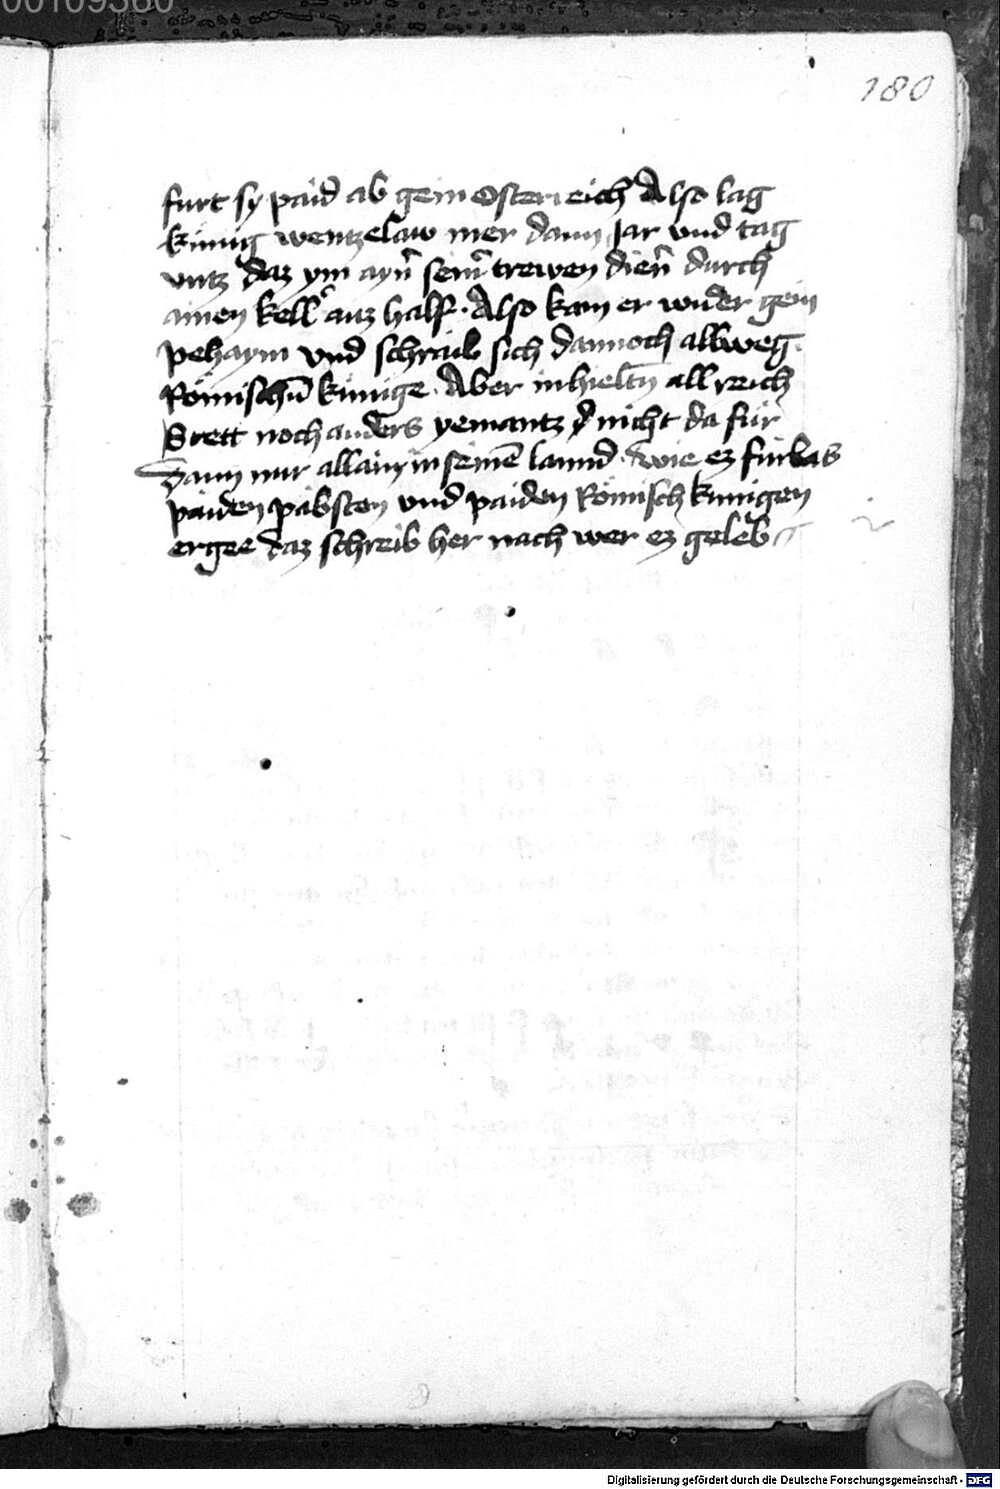 00109380
180
furt sy paid ab gein Osterreich Also lag
künig wentzelaw mer dann Jar vnd tag
vntz daz ym ayn̄ seinr̄ trewen dien̄ durch
ainen kell̄ auz half · Also kam er wider gein
pehaym vnd schraib sich dannoch allweg
Römischn̄ künige · Aber inhieltn̄ all reich
Stett noch anders yemantz nicht da für
Dann nur allain in seinē lannd · wie ez fürbas
paiden pabsten vnd paiden Römisch künigen
ergee daz schreib her nach wer ez geleb
Digitalisierung gefördert durch die Deutsche Forschungsgemeinschaft - DFG